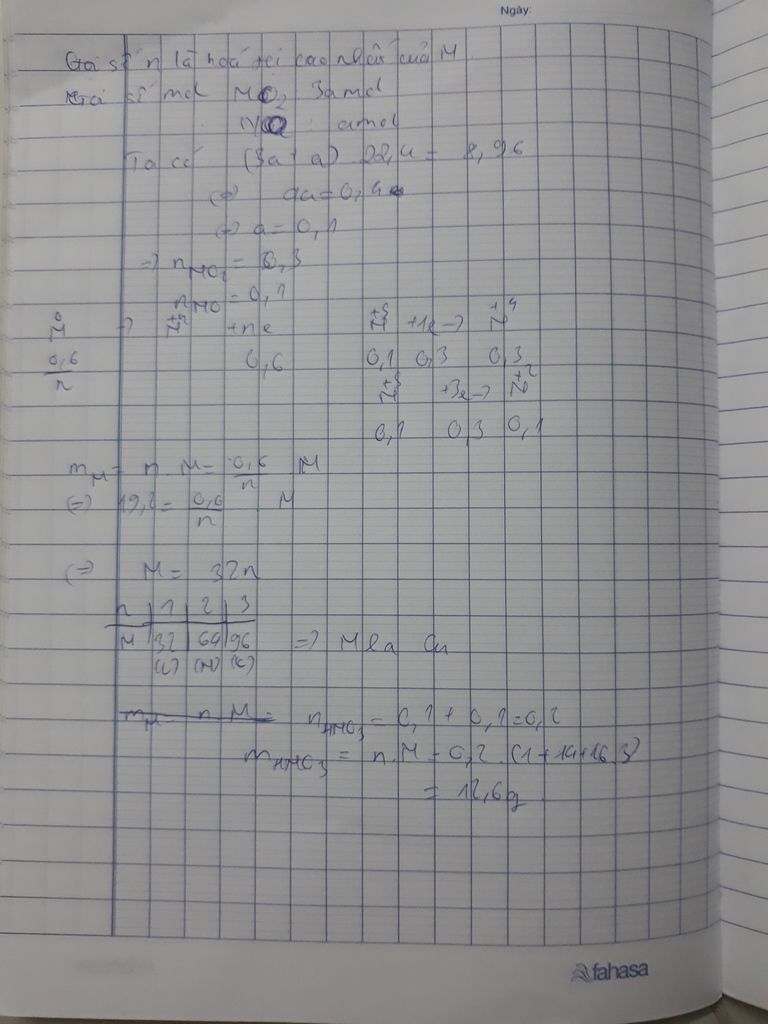 Ngày:
Giả sử n là hoá trị cao nhất của M
Giả sử mol NO2 3amol
NO : amol
Ta có (3a + a) 22,4 = 8,96
(=) 4a = 0,4
(=) a = 0,1
=> nNO2 = 0,3
nNO = 0,1
M0 -> M+n + ne N+5 +1e -> N+4
0,6/n 0,6 0,1 0,3 0,3
N+5 +3e -> N+2
0,1 0,3 0,1
mM = n . M = 0,6/n M
(=) 19,2 = 0,6/n M
(=> M = 32n
n | 1 | 2 | 3
M | 32 | 64 | 96 => M là Cu
(L) (N) (L)
mM = n M = nHNO3 = 0,1 + 0,1 = 0,2
mHNO3 = n.M = 0,2 . (1 + 14 + 16.3)
= 12,6g
fahasa